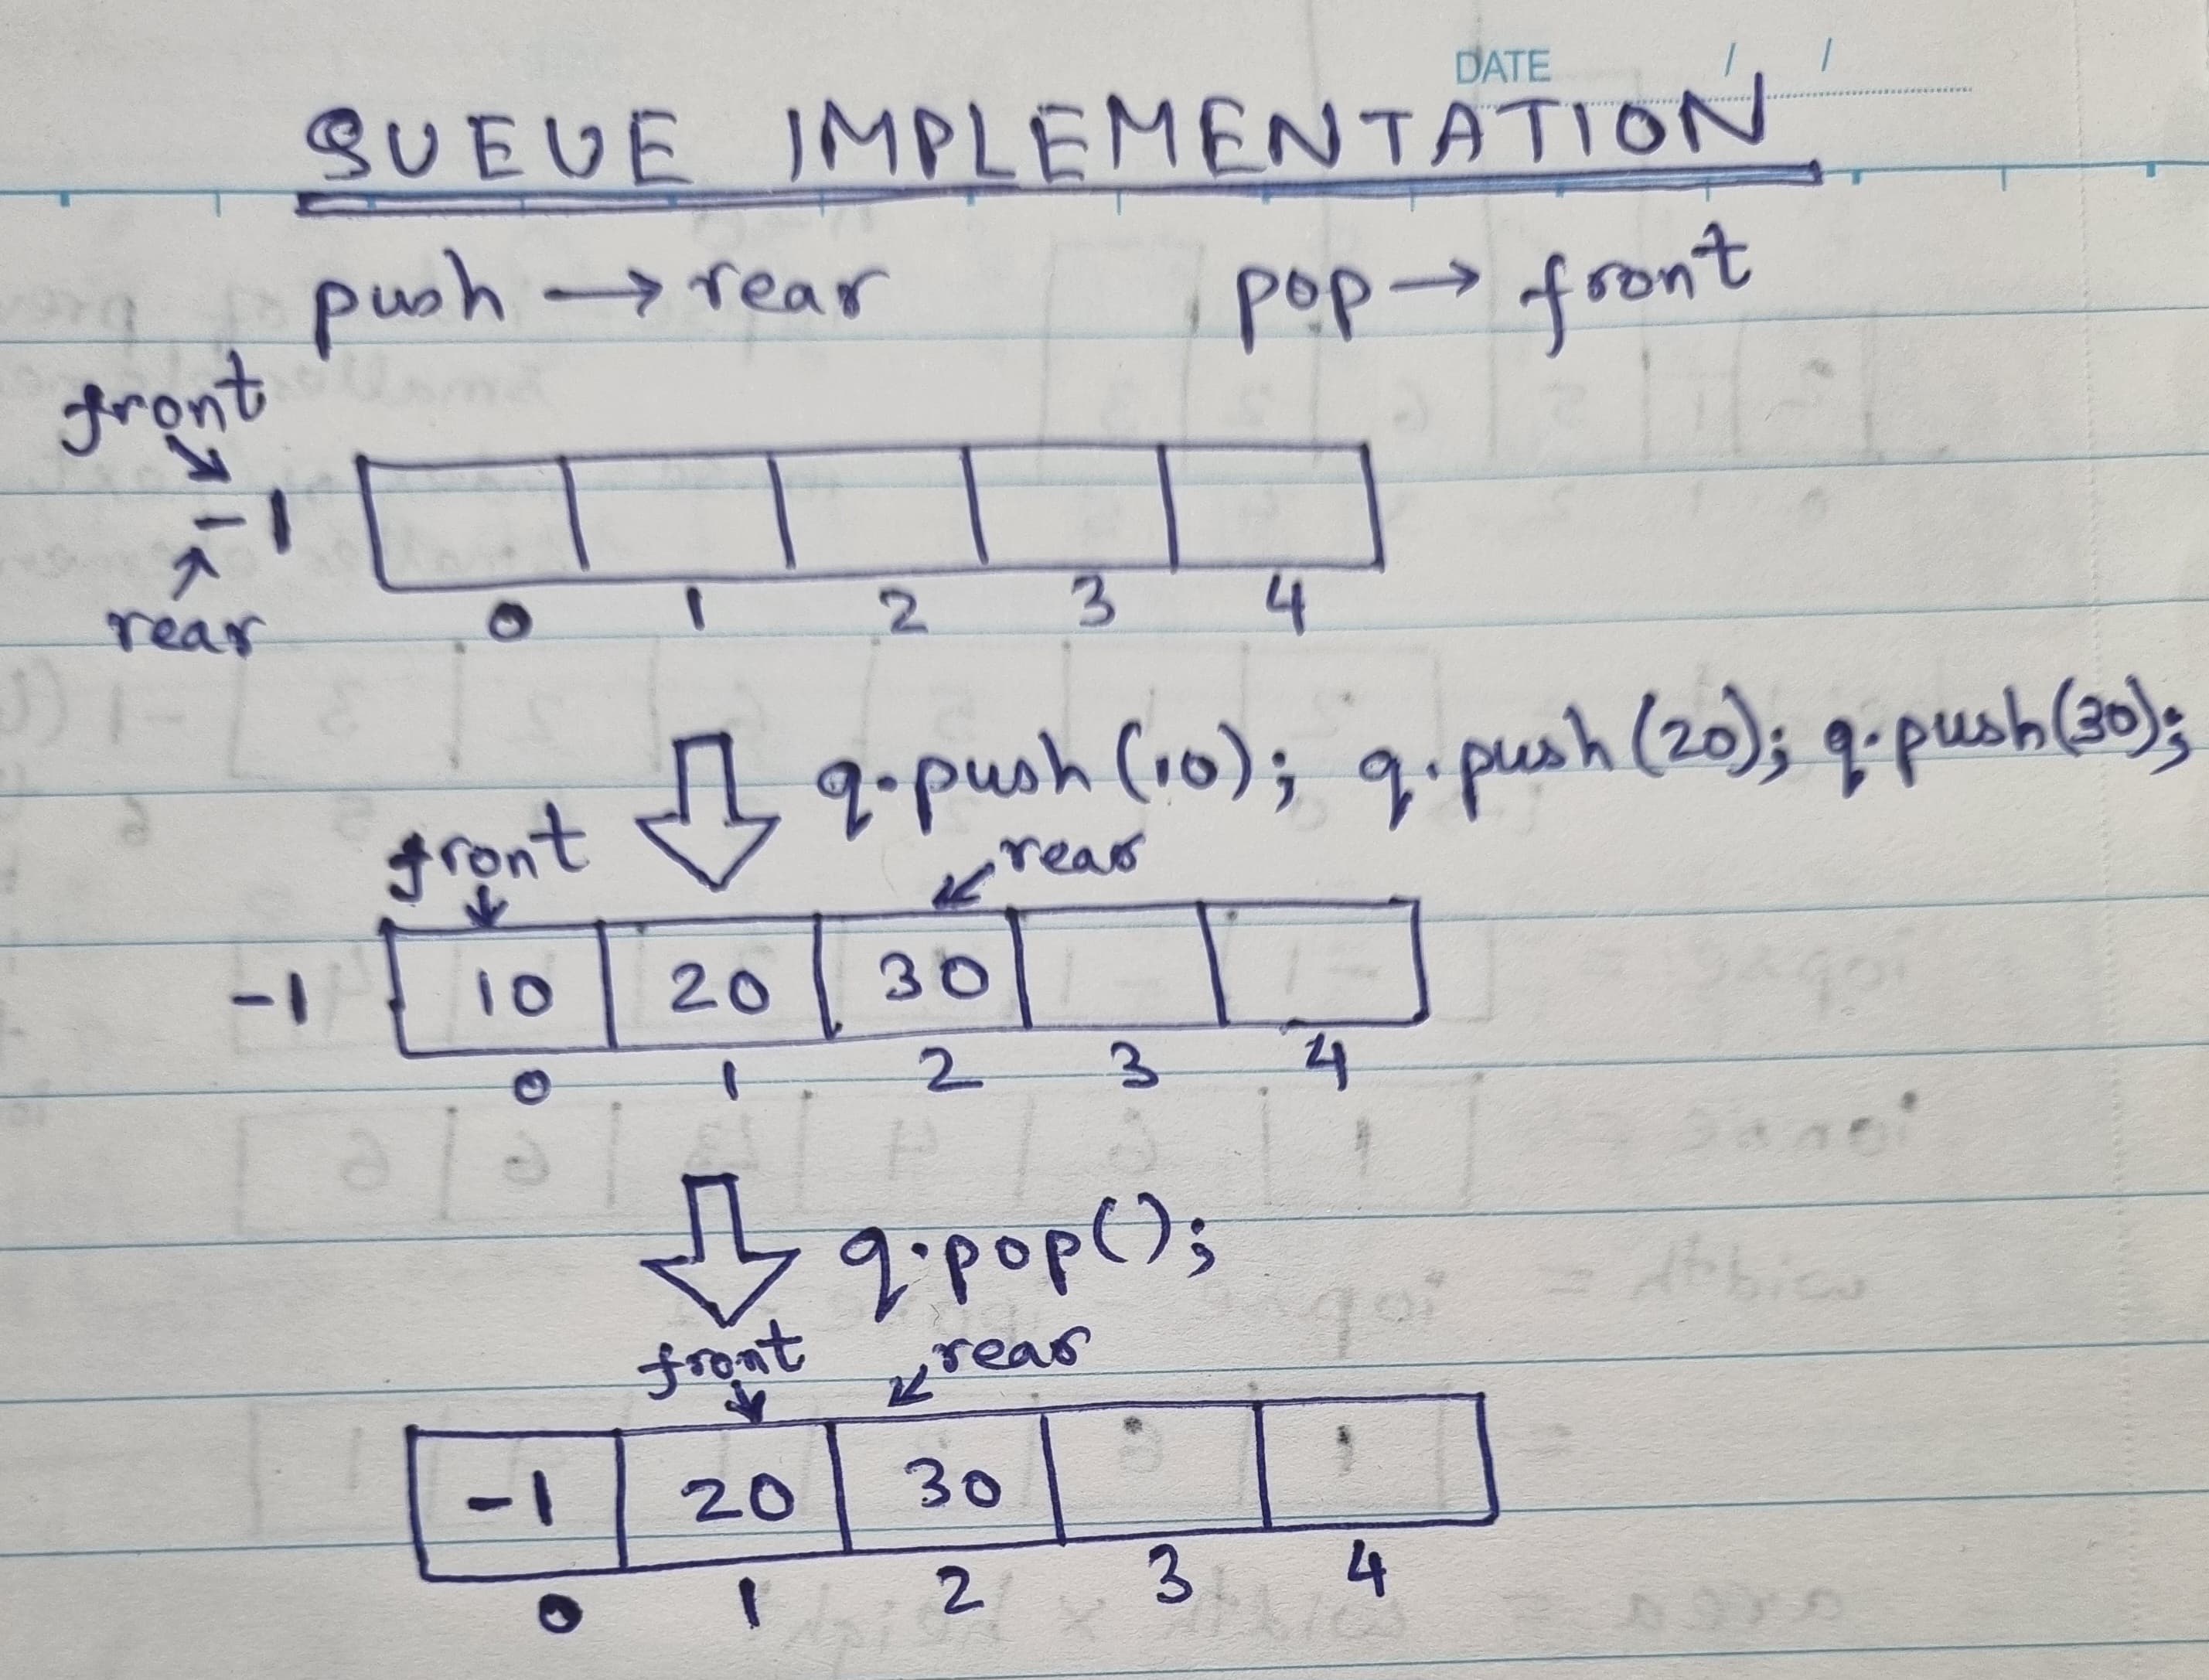 DATE / /
QUEUE IMPLEMENTATION
push → rear pop → front
front
-1
rear
0 1 2 3 4
q.push(10); q.push(20); q.push(30);
front rear
-1 10 20 30
0 1 2 3 4
q.pop();
front rear
-1 20 30
0 1 2 3 4